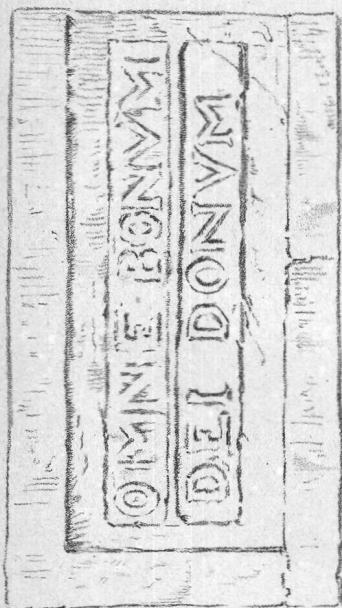 OMNE BONVM
DEI DONVM